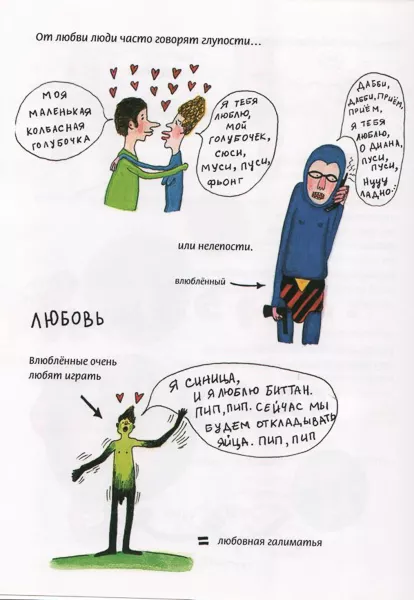 От любви люди часто говорят глупости...
МОЯ
МАЛЕНЬКАЯ
КОЛБАСНАЯ
ГОЛУБОЧКА
Я ТЕБЯ
ЛЮБЛЮ,
МОЙ
ГОЛУБОЧЕК,
СЮСИ,
МУСИ, ПУСИ,
ФЬОНГ
ДАББИ,
ДАББИ, ПРИЁМ,
ПРИЁМ,
Я ТЕБЯ
ЛЮБЛЮ,
О ДИАНА,
ПУСИ,
ПУСИ,
НУУУ
ЛАДНО...
или нелепости.
влюблённый
ЛЮБОВЬ
Влюблённые очень
любят играть
Я СИНИЦА,
И Я ЛЮБЛЮ БИТТАН.
ПИП, ПИП. СЕЙЧАС МЫ
БУДЕМ ОТКЛАДЫВАТЬ
ЯЙЦА. ПИП, ПИП
= любовная галиматья